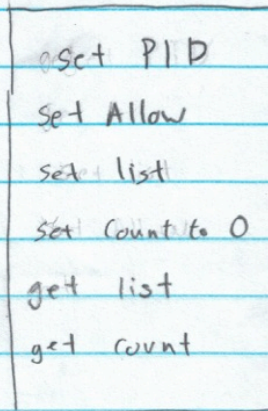 set PID
set Allow
set list
set Count to 0
get list
get count